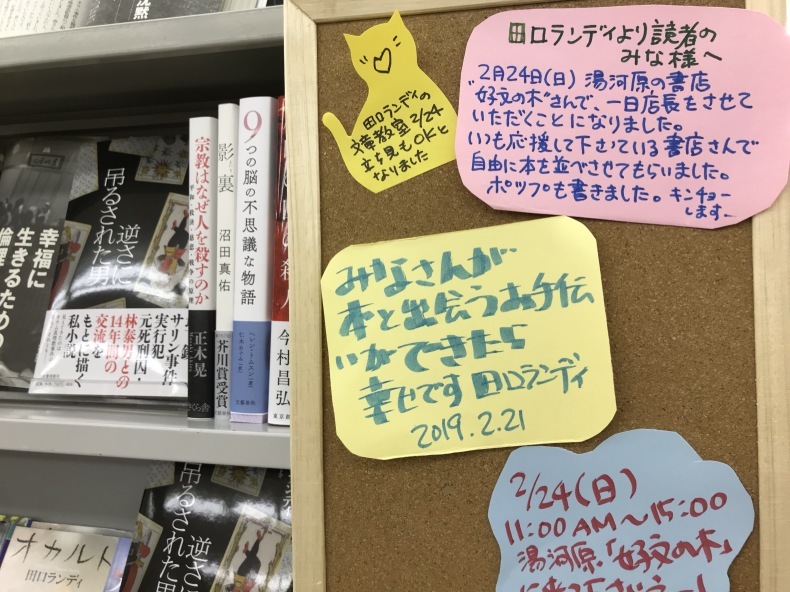 逆さに
吊るされた男
幸福に
生きるための
倫理
サリン事件
実行犯
元死刑囚・
林泰男との
14年間の
交流を
もとに描く
私小説
宗教はなぜ人を殺すのか
正木晃
さくら舎
影裏
沼田真佑
芥川賞受賞
9つの脳の不思議な物語
文藝春秋
今村昌弘
逆さに
吊るされた男
オカルト
田口ランディ
田口ランディの
文章教室2/24
立ち見もOKと
なりました
田口ランディより読者の
みな様へ
2月24日(日)湯河原の書店
"好文の木"さんで、一日店長をさせて
いただくことになりました。
いつも応援して下さっている書店さんで
自由に本を並べさせてもらいました。
ポップも書きました。キンチョー
します。
みなさんが
本と出会うお手伝
いができたら
幸せです 田口ランディ
2019.2.21
2/24(日)
11:00AM〜15:00
湯河原「好文の木」